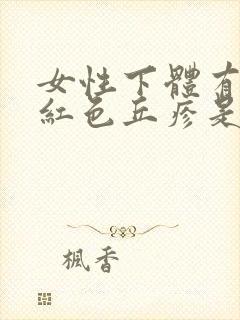 女性下體有
紅色丘疹是
楓香